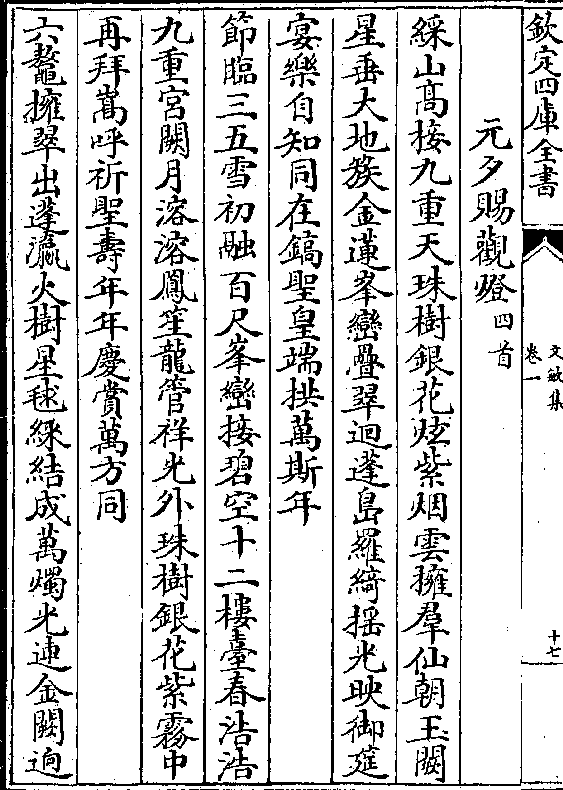 欽定四庫全書
文敏集
卷一
十七
元夕賜觀燈四首
綵山髙接九重天珠樹銀花炫紫烟雲擁羣仙朝玉闕
星垂大地簇金蓮峯巒疊翠迴蓬島羅綺揺光映御筵
宴樂自知同在鎬聖皇端拱萬斯年
節臨三五雪初融百尺峯巒接碧空十二樓臺春浩浩
九重宫闕月溶溶鳳笙龍管祥光外珠樹銀花紫霧中
再拜嵩呼祈聖壽年年慶賞萬方同
六鼇擁翠出蓬瀛火樹星毬綵結成萬燭光連金闕逈